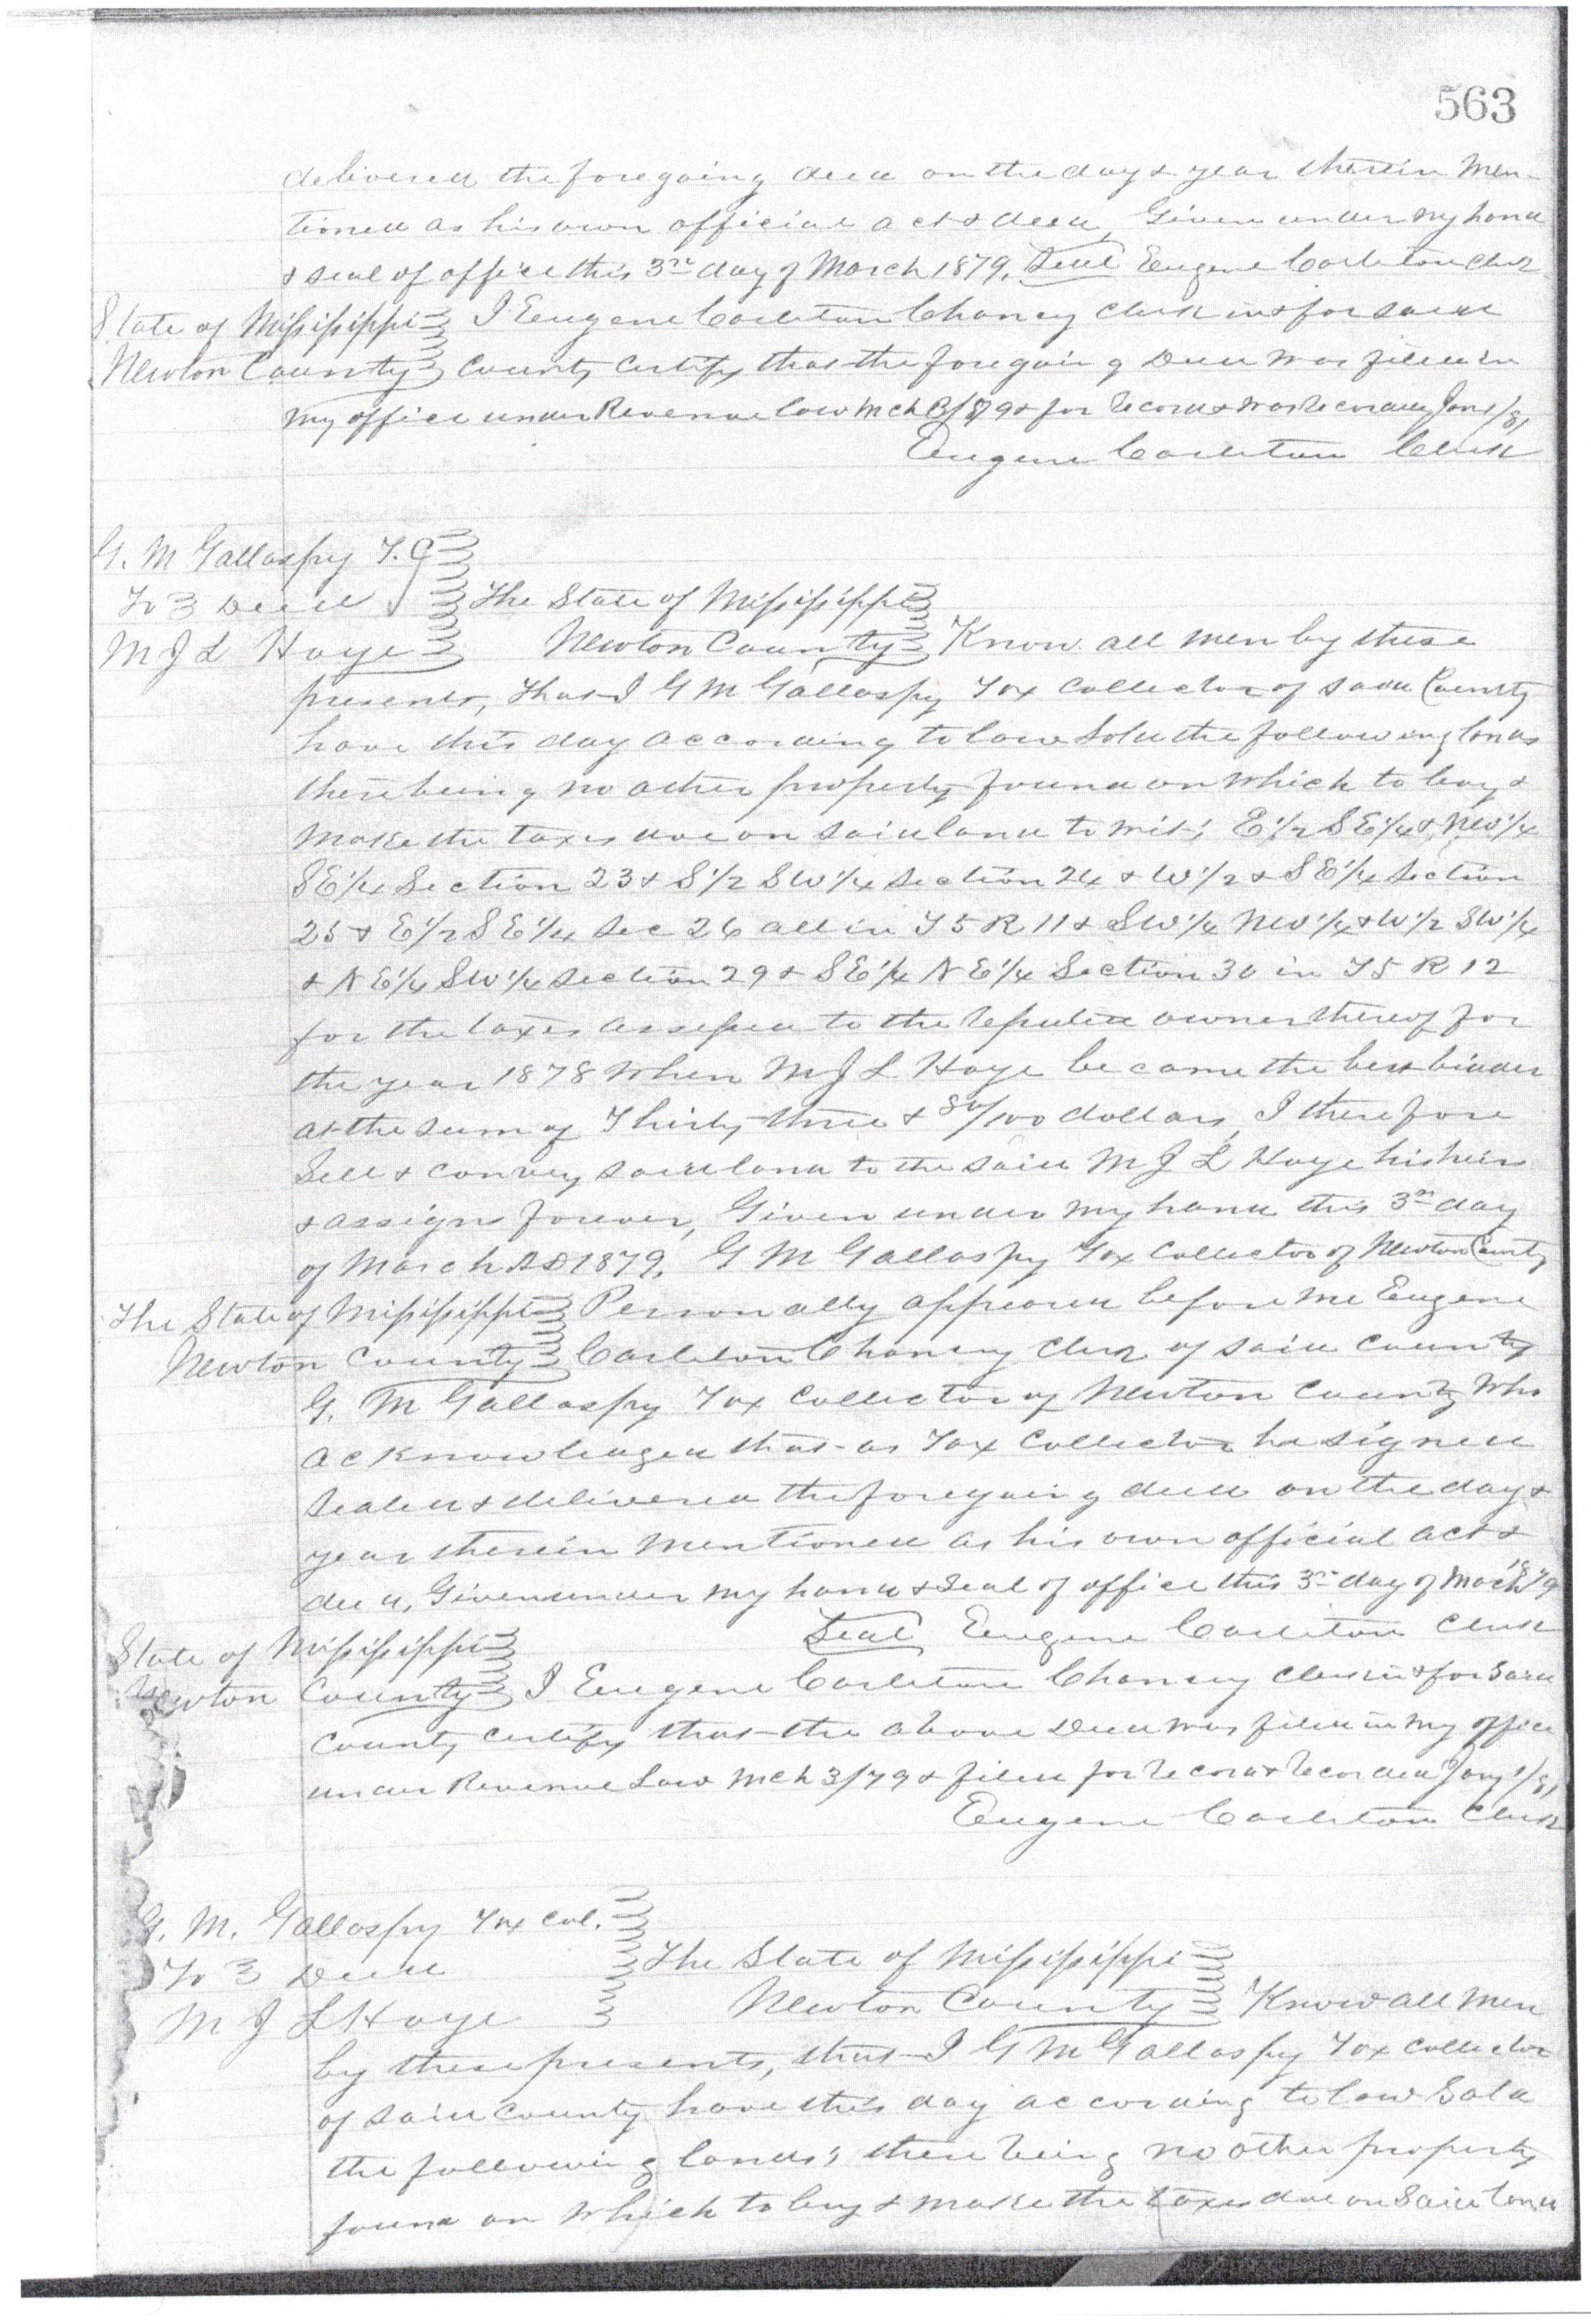 563
delivered the foregoing deed on the day & year therein men-
tioned as his own official act & deed, Given under my hand
& seal of office this 3rd day of March 1879, Seal Eugene Carleton Clerk
State of Mississippi I Eugene Carleton Chancy Clerk in & for said
Newton County County certify that the foregoing Deed was filed in
my office under Revenue law Mch 3/79 & for record & was recorded Jany 1/81
Eugene Carleton Clerk
G. M Gallaspy T. C
To } Deed The State of Mississippi
M J L Hoye Newton County Know all men by these
presents, that I G M Gallaspy Tax Collector of said County
have this day according to law sold the following lands
there being no other property found on which to levy &
make the taxes due on said land to wit; E 1/2 SE 1/4 & NW 1/4
SE 1/4 Section 23 & S 1/2 SW 1/4 Section 24 & W 1/2 & SE 1/4 Section
25 & E 1/2 SE 1/4 Sec 26 all in T 5 R 11 & SW 1/4 NW 1/4 & W 1/2 SW 1/4
& NE 1/4 SW 1/4 Section 29 & SE 1/4 NE 1/4 Section 30 in T5 R 12
for the taxes assessed to the reputed owner thereof for
the year 1878 when M J L Hoye became the best bidder
at the sum of Thirty three & /100 dollars, I therefore
sell & convey said land to the said M J L Hoye his heirs
& assigns forever, Given under my hand this 3rd day
of March AD 1879, G M Gallaspy Tax Collector of Newton County
The State of Mississippi Personally appeared before me Eugene
Newton County Carleton Chancy Clerk of said County
G. M Gallaspy Tax Collector of Newton County who
acknowledged that as Tax Collector he signed
sealed & delivered the foregoing deed on the day &
year therein mentioned as his own official act &
deed, Given under my hand & seal of office this 3rd day of Mach 1879
Seal Eugene Carleton Clerk
State of Mississippi
Newton County I Eugene Carleton Chancy Clerk in & for said
County certify that the above Deed was filed in my office
under Revenue Law Mch 3/79 & filed for record & recorded Jany 1/81
Eugene Carleton Clerk
G. M. Gallaspy Tax Col.
To } Deed The State of Mississippi
M J L Hoye Newton County Know all men
by these presents, that I G M Gallaspy Tax Collector
of said County have this day according to law sold
the following lands; there being no other property
found on which to levy & make the taxes due on said land